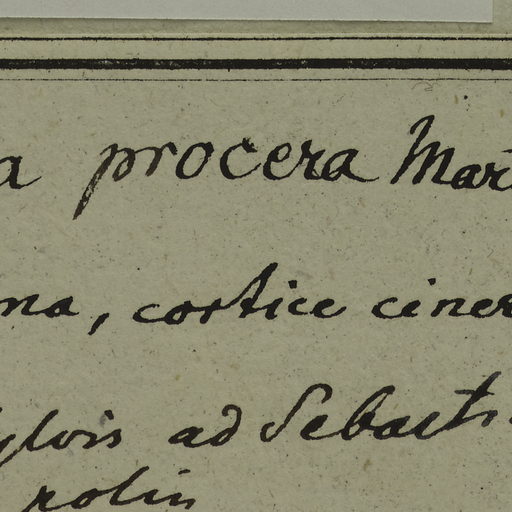 a procera Mart
ma, cortice ciner
ylvis ad Sebasti
rolin